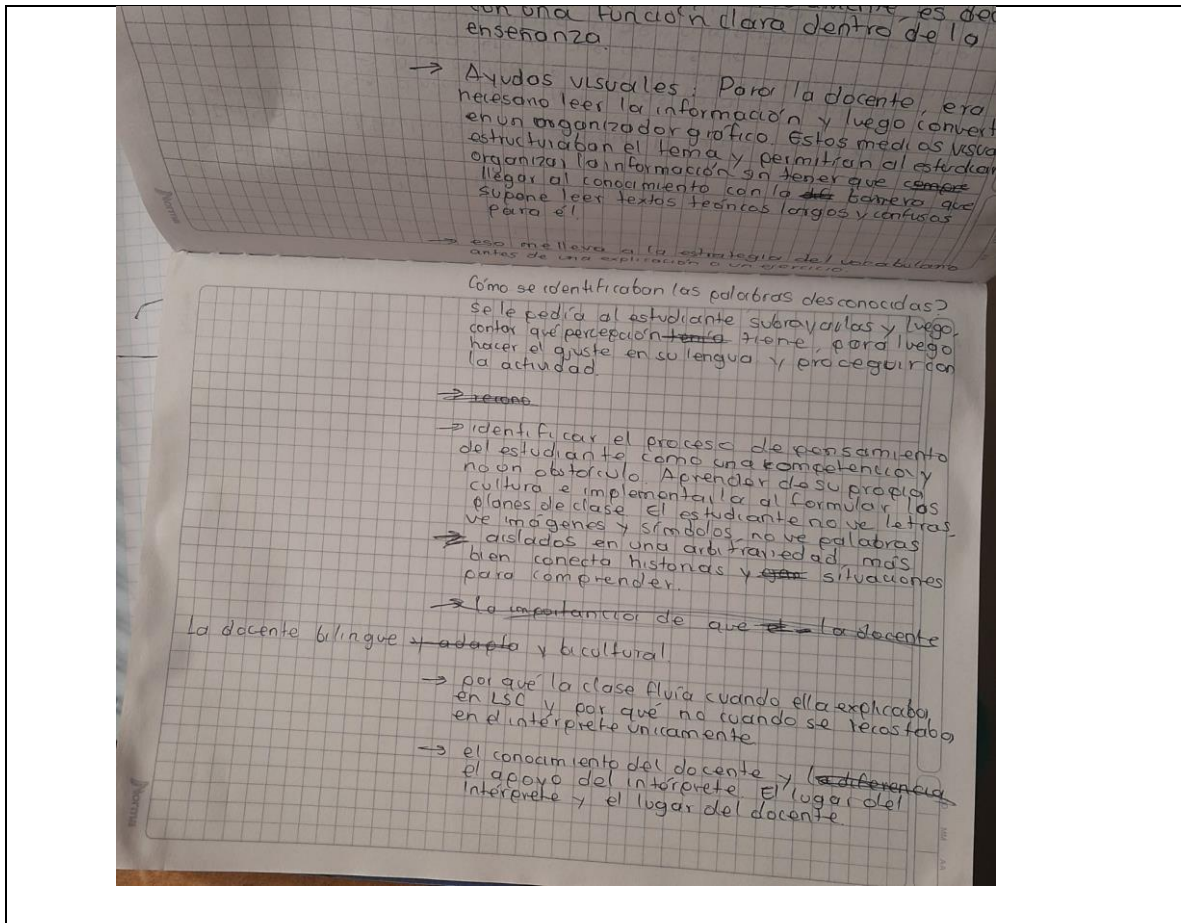 con una función clara dentro de la es dec
enseñanza.
→ Ayudas visuales: Para la docente, era
necesario leer la información y luego convert
en un organizador gráfico. Estos medios visua
estructuraban el tema y permitían al estudian
organizar la información sin tener que siempre
llegar al conocimiento con la barrera que
supone leer textos teóricos largos y confusos
para él.
→ eso me lleva a la estrategia del vocabulario
antes de una explicación o un ejercicio
Cómo se identificaban las palabras desconocidas?
se le pedía al estudiante subrayarlas y luego
contar qué percepción tenía tiene, para luego
hacer el ajuste en su lengua y proceguir con
la actividad.
→ identificar el proceso de pensamiento
del estudiante como una competencia y
no un obstáculo. Aprender de su propia
cultura e implementarla al formular los
planes de clase. El estudiante no ve letras
ve imágenes y símbolos, no ve palabras
→ aisladas en una arbitrariedad, más
bien conecta historias y situaciones
para comprender.
→ La importancia de que la docente
La docente bilingue y adapta y bicultural
→ por qué la clase fluía cuando ella explicaba
en LSC y por qué no cuando se recostaba
en el intérprete únicamente
→ el conocimiento del docente y la diferencia
el apoyo del intérprete. El lugar del
intérprete y el lugar del docente.
Norma
Norma